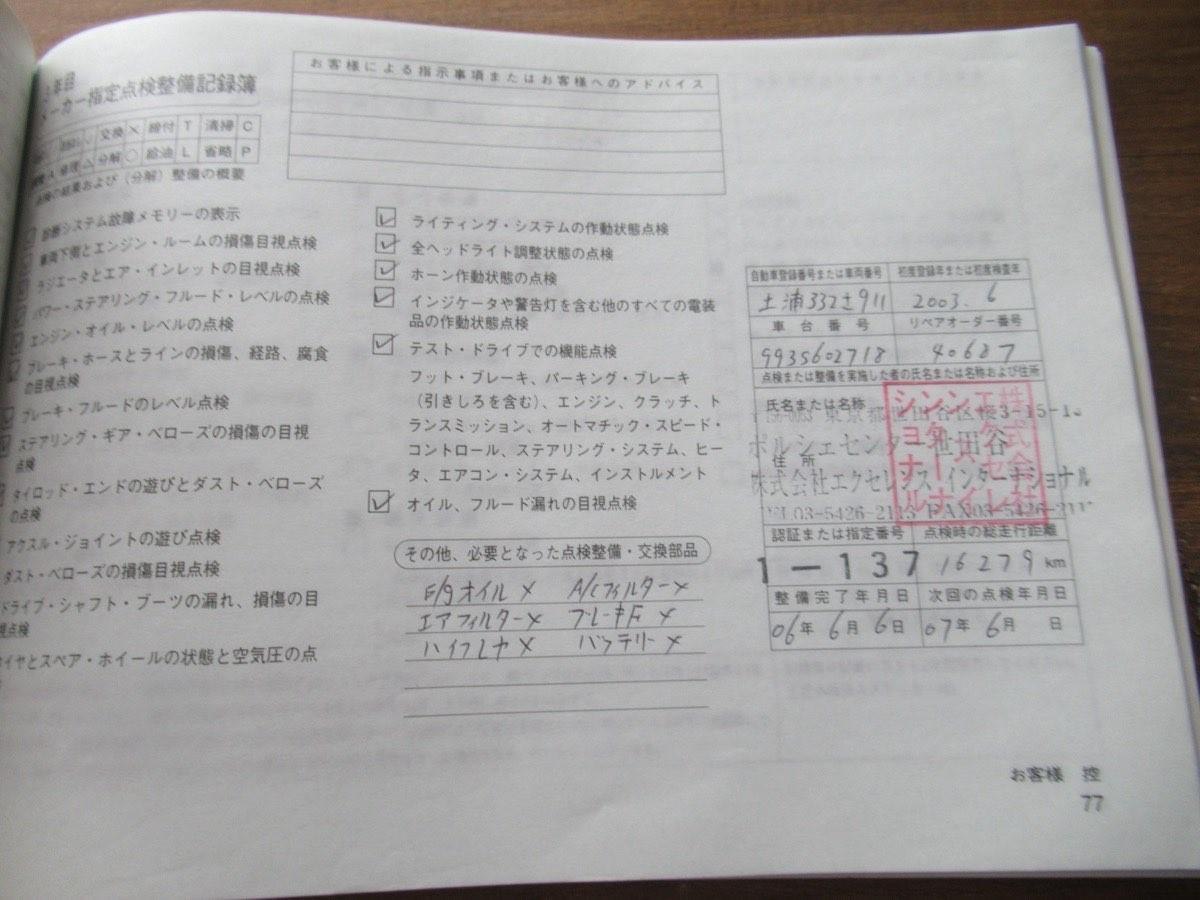 年目
メーカー指定点検整備記録簿
交換 × 締付 T 清掃 C
修理 △ 分解 ○ 給油 L 省略 P
点検の結果および(分解)整備の概要
診断システム故障メモリーの表示
車両下側とエンジン・ルームの損傷目視点検
ラジエータとエア・インレットの目視点検
パワー・ステアリング・フルード・レベルの点検
エンジン・オイル・レベルの点検
ブレーキ・ホースとラインの損傷、経路、腐食
の目視点検
ブレーキ・フルードのレベル点検
ステアリング・ギア・ベローズの損傷の目視
点検
タイロッド・エンドの遊びとダスト・ベローズ
の点検
アクスル・ジョイントの遊び点検
ダスト・ベローズの損傷目視点検
ドライブ・シャフト・ブーツの漏れ、損傷の目
視点検
タイヤとスペア・ホイールの状態と空気圧の点
お客様による指示事項またはお客様へのアドバイス
ライティング・システムの作動状態点検
全ヘッドライト調整状態の点検
ホーン作動状態の点検
インジケータや警告灯を含む他のすべての電装
品の作動状態点検
テスト・ドライブでの機能点検
フット・ブレーキ、パーキング・ブレーキ
(引きしろを含む)、エンジン、クラッチ、ト
ランスミッション、オートマチック・スピード・
コントロール、ステアリング・システム、ヒー
タ、エアコン・システム、インストルメント
オイル、フルード漏れの目視点検
その他、必要となった点検整備・交換部品
E/gオイル × A/Cフィルター ×
エアフィルター × ブレーキF ×
ハイフレヤ × バッテリー ×
自動車登録番号または車両番号 初度登録年または初度検査年
土浦 332 911 2003. 6
車台番号 リペアオーダー番号
993S602718 40687
点検または整備を実施した者の氏名または名称および住所
氏名または名称
東京都世田谷区桜3-15-1
ポルシェセンター世田谷
住所
株式会社エクセレンス インターナショナル
TEL03-5426-2113 FAX03-5426-211
株式会社
エクセレ
ンス・イン
ターナ
ショナル
認証または指定番号 点検時の総走行距離
1-137 16279 km
整備完了年月日 次回の点検年月日
06年 6月 6日 07年 6月 日
お客様 控
77